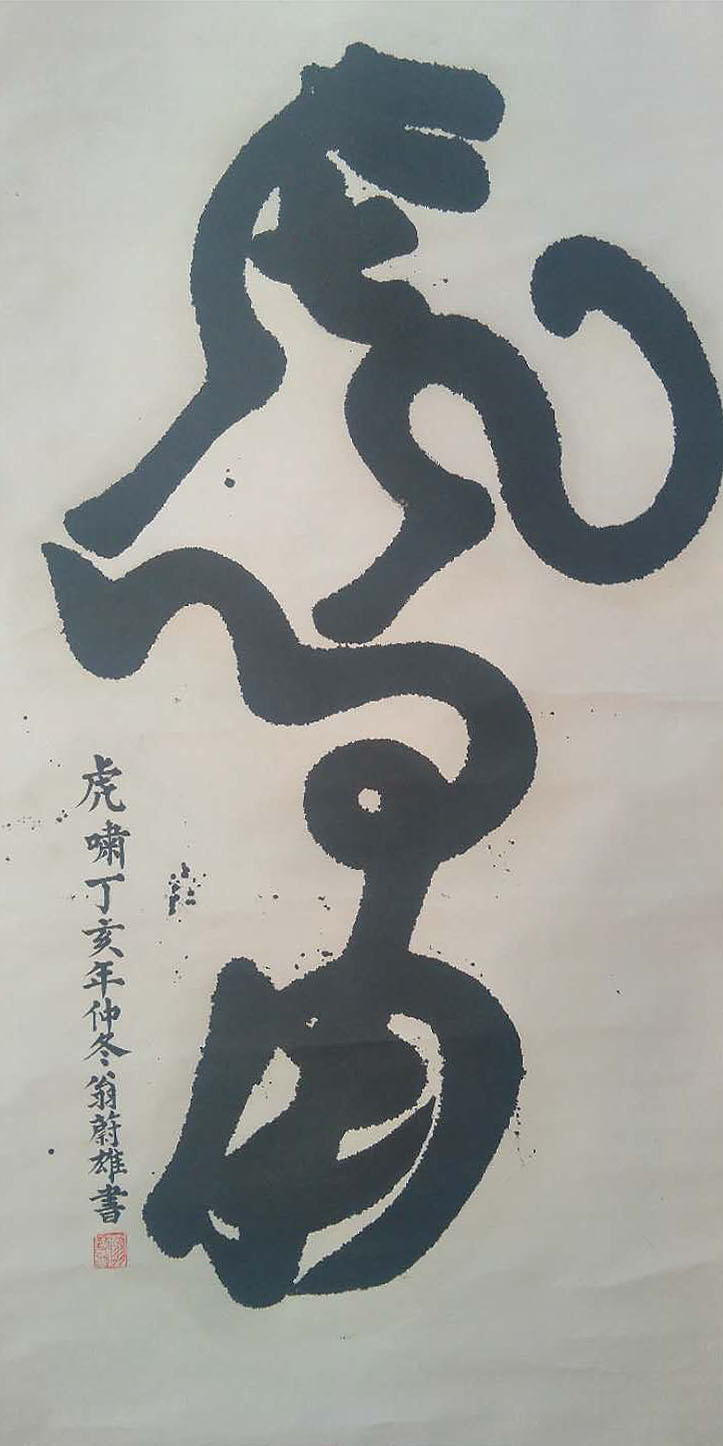 虎嘯
虎嘯丁亥年仲冬翁蔚雄書